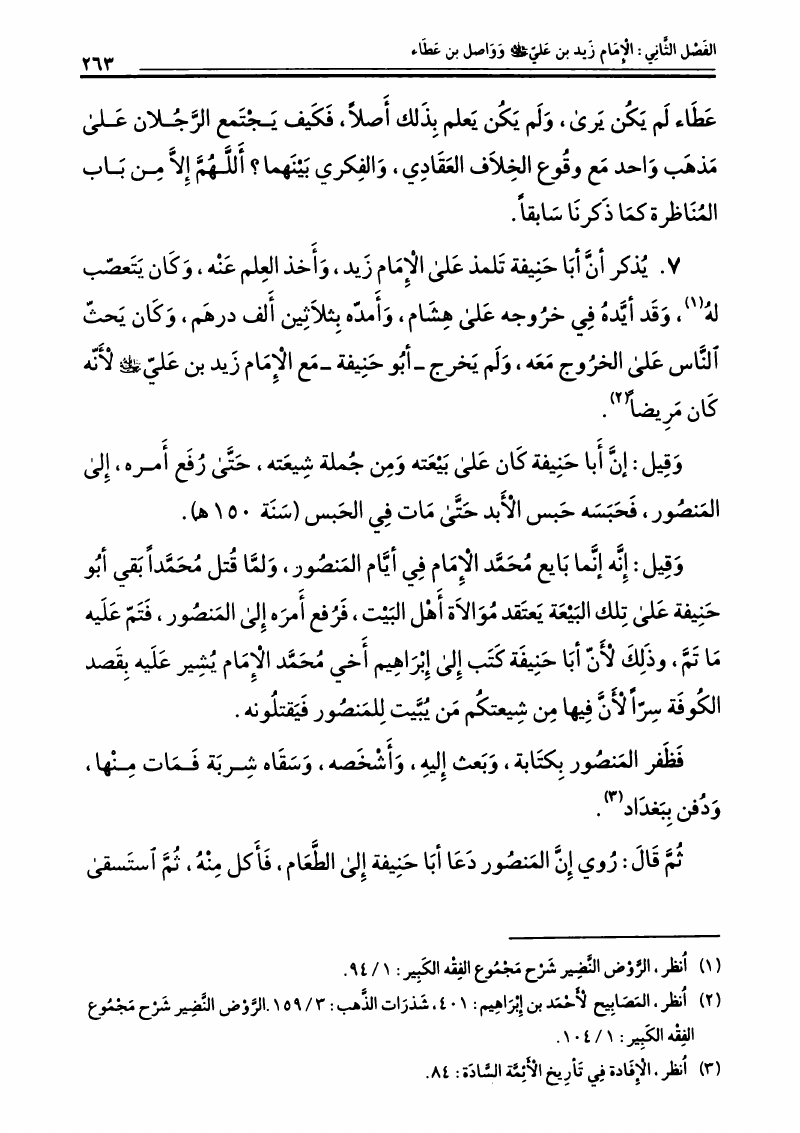 الفَصْل الثَّانِي : الْإِمَام زَيد بن عَليّ وَوَاصل بن عَطَاء
٢٦٣
عَطَاء لَم يَكُن يَرىٰ ، وَلَم يَكُن يَعلم بِذَلك أَصلاً ، فَكَيف يَـجْتَمع الرَّجُـلان عَـلىٰ
مَذهَب وَاحد مَع وقُوع الخِلاَف العَقَادِي ، وَالفِكري بَيْنَهما ؟ أَللَّـهُمَّ إِلاَّ مِـن بَـاب
المُنَاظرة كمَا ذَكرنَا سَابقاً .
٧. يُذكر أنَّ أبَا حَنِيفة تَلمذ عَلىٰ الْإِمَام زَيد ، وَأَخذ العِلم عَنْه ، وَكَان يَتَعصّب
لهُ(١) ، وَقَد أيَّدهُ فِي خرُوجه عَلىٰ هِشَام ، وَأَمدّه بِثلاَثِين أَلف درهَم ، وَكَان يَحثّ
ٱلنَّاس عَلىٰ الخرُوج مَعَه ، وَلَم يَخرج ـ أبُو حَنِيفة ـ مَع الْإِمَام زَيد بن عَليّ لْأَنّه
كَان مَرِيضاً(٢) .
وَقِيل : إنَّ أَبا حَنِيفة كَان عَلىٰ بَيْعَته وَمِن جُملة شِيعَته ، حَتَّىٰ رُفَع أَمـره ، إِلىٰ
المَنصُور ، فَحَبَسَه حَبس الْأَبد حَتَّىٰ مَات فِي الحَبس (سَنَة ١٥٠ هـ).
وَقِيل : إِنَّه إنَّما بَايع مُحَمَّد الْإِمَام فِي أَيَّام المَنصُور ، وَلمَّا قُتل مُحَمَّداً بَقي أبُو
حَنِيفة عَلىٰ تِلك البَيْعَة يَعتَقد مُوَالاَة أَهْل البَيْت ، فَرُفع أَمرَه إِلىٰ المَنصُور ، فَتَمّ عَلَيه
مَا تَمَّ ، وذَلِكَ لْأَنّ أبَا حَنِيفَة كَتَب إِلىٰ إِبْرَاهِيم أَخي مُحَمَّد الْإِمَام يُشِير عَلَيه بِقَصد
الكُوفَة سِرّاً لْأَنَّ فِيها مِن شِيعتكُم مَن يُبَّيت لِلمَنصُور فَيَقتلُونه .
فَظَفر المَنصُور بِكتَابة ، وَبَعث إِليهِ ، وَأَشْخَصه ، وَسَقَاه شِـربَة فَـمَات مِـنْها ،
وَدُفن بِبَغدَاد(٣) .
ثُمَّ قَالَ : رُوي إِنَّ المَنصُور دَعَا أبَا حَنِيفة إِلىٰ الطَّعَام ، فَأَكل مِنْهُ ، ثُمَّ ٱستَسقىٰ
(١) اُنظر ، الرَّوْض النَّضِير شَرْح مَجْمُوع الفِقْه الكَبِير : ١ / ٩٤.
(٢) اُنظر ، المَصَابِيح لْأَحْمَد بن إِبْرَاهِيم : ٤٠١، شَذرَات الذَّهب : ٣ / ١٥٩. الرَّوْض النَّضِير شَرْح مَجْمُوع
الفِقْه الكَبِير : ١ / ١٠٤.
(٣) اُنظر ، الْإِفَادة فِي تَأرِيخ الْأَئِمَّة السَّادَة : ٨٤.